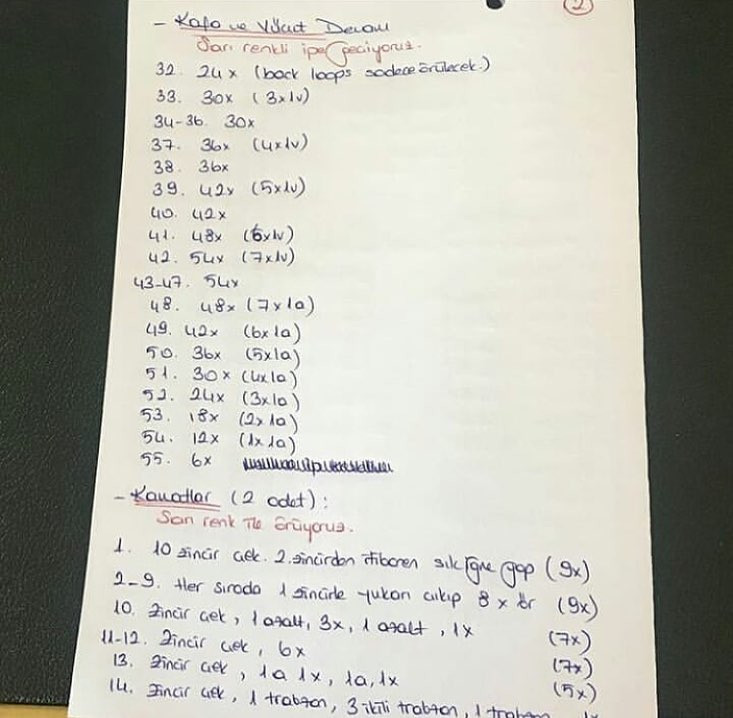 2
- Kafa ve Vücut Devamı
Sarı renkli ipe geçiyoruz.
32. 24x (back loops sadece örülecek.)
33. 30x (3x1v)
34-36. 30x
37. 36x (4x1v)
38. 36x
39. 42x (5x1v)
40. 42x
41. 48x (6x1v)
42. 54x (7x1v)
43-47. 54x
48. 48x (7x1a)
49. 42x (6x1a)
50. 36x (5x1a)
51. 30x (4x1a)
52. 24x (3x1a)
53. 18x (2x1a)
54. 12x (1x1a)
55. 6x
- Kanatlar (2 adet):
Sarı renk ile örüyoruz.
1. 10 zincir çek. 2. zincirden itibaren sık iğne yap (9x)
2-9. Her sırada 1 zincirle yukarı çıkıp 8x ör (9x)
10. Zincir çek, 1 azalt, 3x, 1 azalt, 1x (7x)
11-12. Zincir çek, 6x (7x)
13. Zincir çek, 1a 1x, 1a, 1x (5x)
14. Zincir çek, 1 trabzan, 3 ikili trabzan, 1 trabzan